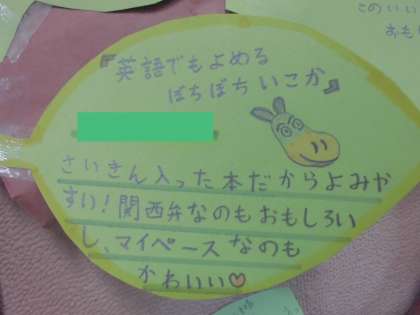 『英語でもよめる
ぼちぼちいこか』
さいきん入った本だからよみや
すい！関西弁なのもおもしろい
し、マイペースなのも
かわいい♡
このいい